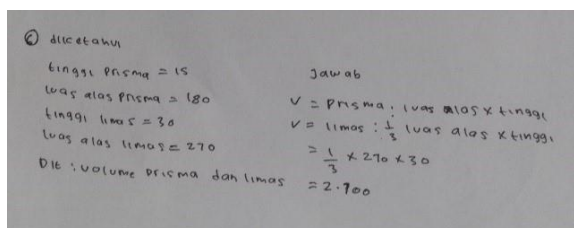 6 diketahui
tinggi prisma = 15
luas alas prisma = 180
tinggi limas = 30
luas alas limas = 270
Dit : volume prisma dan limas
Jawab
V = prisma : luas alas x tinggi
V = limas : 1/3 luas alas x tinggi
= 1/3 x 270 x 30
= 2.700